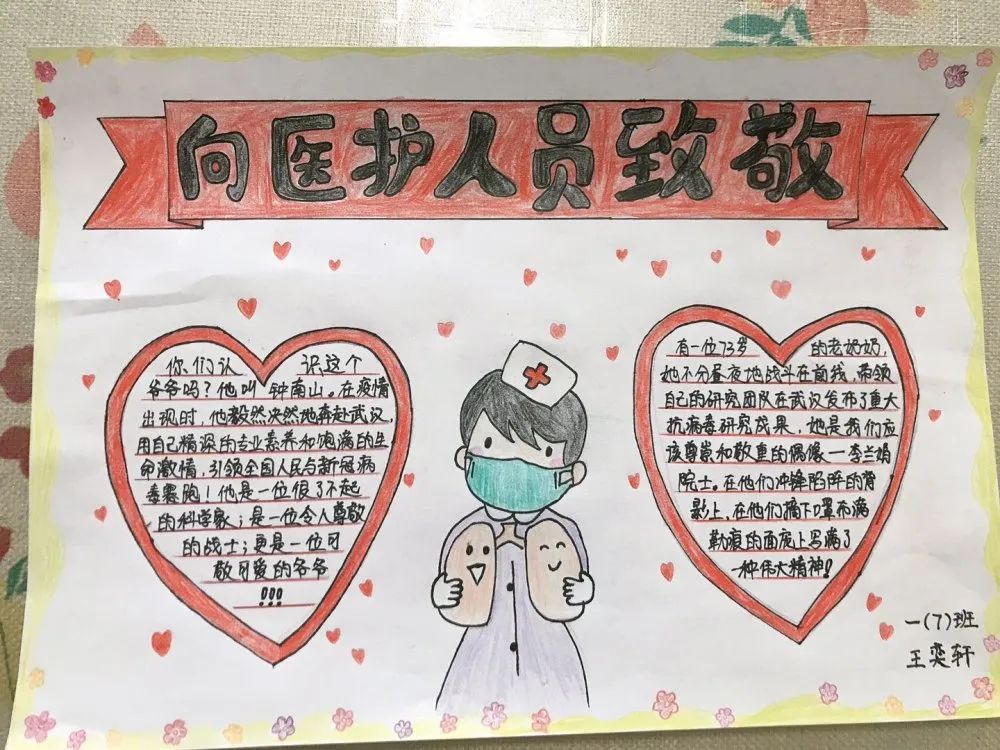 向医护人员致敬
你们认识这个
爷爷吗？他叫钟南山。在疫情
出现时，他毅然决然地奔赴武汉，
用自己精深的专业素养和饱满的生
命激情，引领全国人民与新冠病
毒赛跑！他是一位很了不起
的科学家；是一位令人尊敬
的战士；更是一位可
敬可爱的爷爷
!!!
有一位73岁的老奶奶，
她不分昼夜地战斗在前线，带领
自己的研究团队在武汉发布了重大
抗病毒研究成果，她是我们应
该尊崇和敬重的偶像—李兰娟
院士。在他们冲锋陷阵的背
影上，在他们摘下口罩布满
勒痕的面庞上写满了
一种伟大精神！
一(7)班
王奕轩